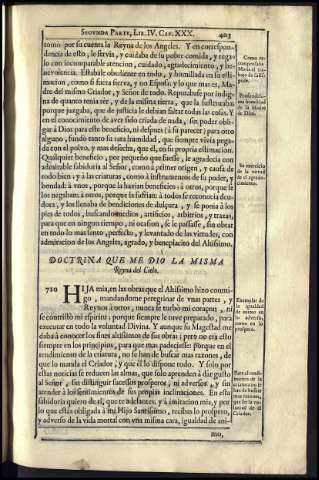 SEGUNDA PARTE, LIB. IV. CAP. XXX. 403
tomò por su cuenta la Reyna de los Angeles. Y en correspon-
dencia de esto, le servia, y cuidaba de su pobre comida, y rega-
lo con incomparable atencion, cuidado, agradecimiento, y be-
nevolencia. Estabale obediente en todo, y humillada en su esti-
macion, como si fuera sierva, y no Esposa; y lo que mas es, Ma-
dre del mismo Criador, y Señor de todo. Reputabase por indig-
na de quanto tenia sèr, y de la misma tierra, que la sustentaba:
porque juzgaba, que de justicia le debian faltar todas las cosas. Y
en el conocimiento de aver sido criada de nada, sin poder obli-
gar à Dios para este beneficio, ni despues (à su parecer) para otro
alguno, fundò tanto su rara humildad, que siempre vivia pega-
da con el polvo, y mas desecha, que el, en su propria estimacion.
Qualquier beneficio, por pequeño que fuesse, le agradecia con
admirable sabiduria al Señor, como à primer origen, y causa de
todo bien; y à las criaturas, como à instrumentos de su poder, y
bondad: à unos, porque la harian beneficios; à otros, porque se
los negaban; à otros, porque la sufrian: à todos se reconocia deu-
dora, y los llenaba de bendiciones de dulçura, y se ponia à los
pies de todos, buscando medios, artificios, arbitrios, y trazas,
para que en ningun tiempo, ni ocasion, se le passasse, sin obrar
en todo lo mas santo, perfecto, y levantado de las virtudes, con
admiracion de los Angeles, agrado, y beneplacito del Altissimo.
DOCTRINA QUE ME DIO LA MISMA
Reyna del Cielo.
720 HIJA mia, en las obras que el Altissimo hizo conmi-
go, mandandome peregrinar de unas partes, y
Reynos à otros, nunca se turbò mi coraçon, ni
se contristò mi espiritu; porque siempre le tuve preparado, para
executar en todo la voluntad Divina. Y aunque su Magestad me
daba à conocer los fines altissimos de sus obras; pero no era esto
siempre en los principios, para que mas padeciesse: Porque en el
rendimiento de la criatura, no se han de buscar mas razones, de
que lo manda el Criador, y que èl lo dispone todo. Y solo por
estas noticias se reducen las almas, que solo aprenden à dar gusto
al Señor, sin distinguir sucessos prosperos, ni adversos, y sin
atender à los sentimientos de sus proprias inclinaciones. En esta
sabiduria quiero de ti, que te adelantes; y à imitacion mia, y por
lo que estàs obligada à mi Hijo Santissimo, recibas lo prospero,
y adverso de la vida mortal con una misma cara, igualdad de ani-
mo,
Su exercicio
de la virtud
de el agrade-
cimiento.
Exemplar de
la igualdad
de animo en
lo adverso,
como en lo
prospero.